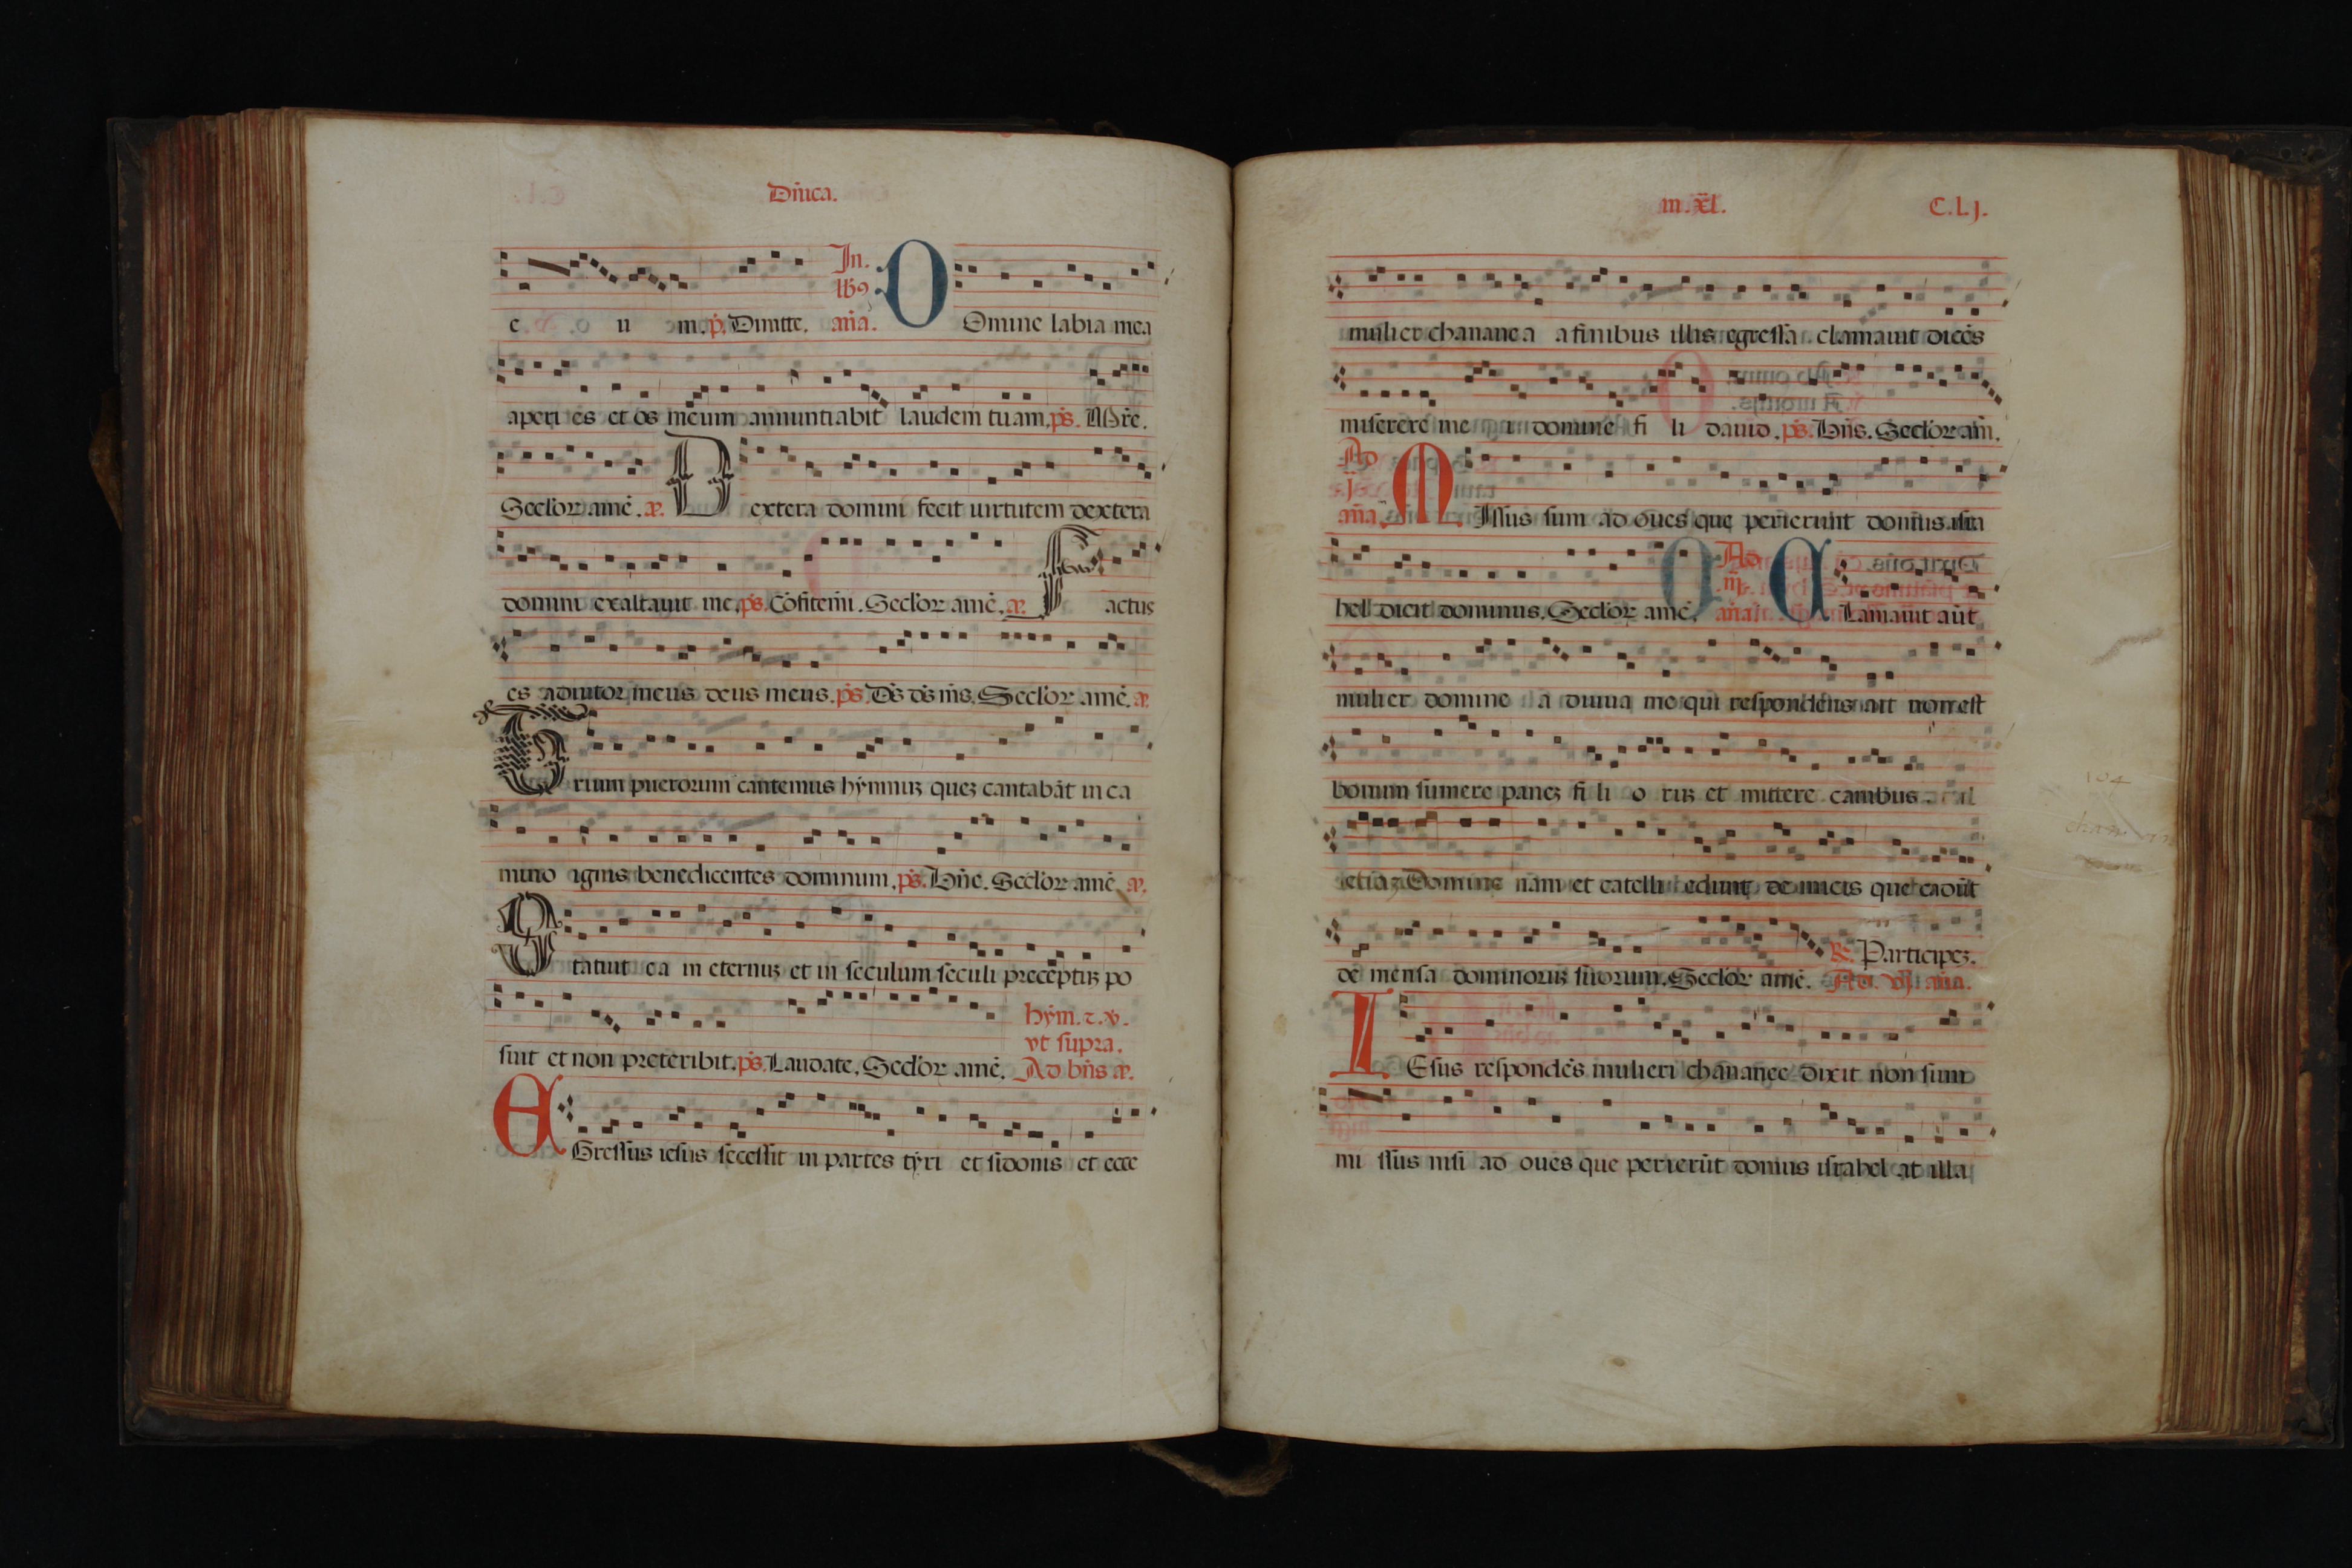 Dn̄ica.
In.
lb9
e u m. p̄. Dimitte. an̄a. Omine labia mea
aperi es et os meum annuntiabit laudem tuam. ps̄. Mr̄e.
Secl'or amē. æ. Dextera domini fecit uirtutem dextera
domini exaltauit me. ps̄. Cōfitem̄. Secl'or amē. æ. Factus
es adiutor meus deus meus. ps̄. Ds̄ ds̄ ms̄. Secl'or amē. æ.
Trium puerorum cantemus hymnuʒ queʒ cantabāt in ca
mino ignis benedicentes dominum. ps̄. Bn̄e. Secl'or amē æ.
Statuit ea in eternuʒ et in seculum seculi preceptuʒ po
hym̄. ⁊. v̄.
vt supra.
suit et non preteribit. ps̄. Laudate. Secl'or amē. Ad bn̄s æ.
EGressus iesus secessit in partes tyri et sidonis et ecce
m. xl̄. C.Lj.
mulier chananea a finibus illis egressa clamauit dicēs
miserere me i domine fi li dauid. ps̄. Bn̄s. Secl'or am̄.
Ad
.j.
an̄a. MIssus sum ad oues que perierunt domus isra
hel dicit dominus. Secl'or amē. Ad
iij.
an̄a CLamauit aūt
mulier domine a diuua me qui respondens ait non est
bonum sumere paneʒ fi li o ruʒ et mittere canibus.
etiaʒ Domine nam et catelli edunt de micis que cadūt
de mensa dominoruʒ suorum. Secl'or amē. R̄. Participeʒ.
Ad. vj an̄a.
IEsus respondēs mulieri chananee dixit non sum
mi ssus nisi ad oues que perierūt domus israhel at illa
104